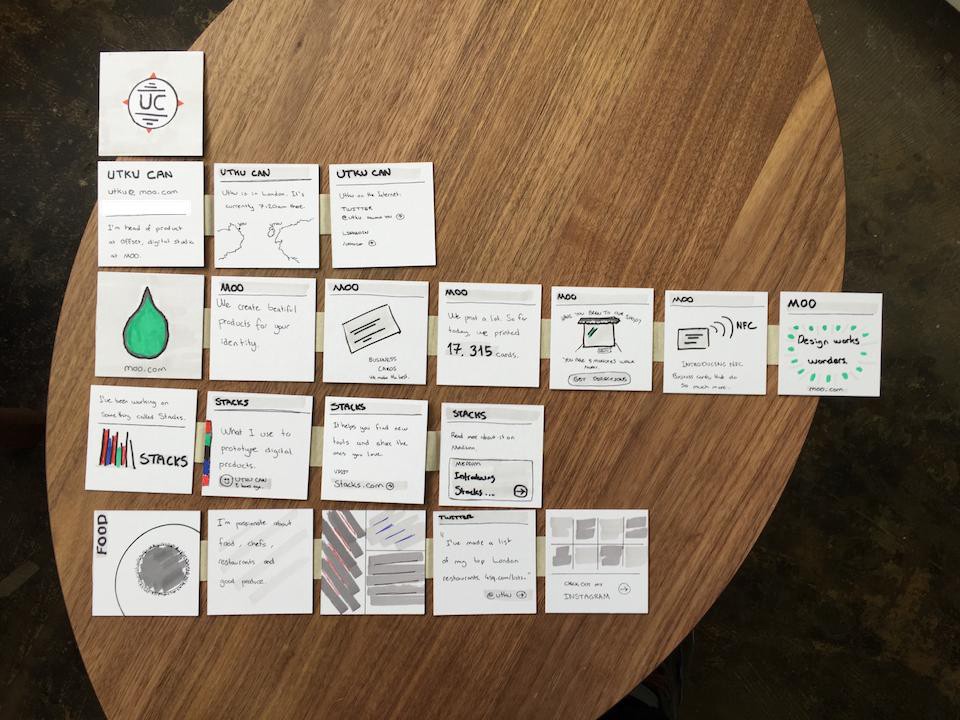 UC
UTKU CAN
utku@ moo.com
I'm head of product
at Offset, digital studio
at MOO.
UTKU CAN
Utku is in London. It's
currently 7:20am there.
YOU
UTKU CAN
Utku on the Internet:
TWITTER
@utku
LINKEDIN
moo.com
MOO
We create beatiful
products for your
identity.
MOO
BUSINESS
CARDS
We make the best.
MOO
We print a lot. So far
today, we printed
17,315 cards.
MOO
HAVE YOU BEEN TO OUR SHOP?
YOU ARE 5 MINUTES WALK
AWAY.
GET DIRECTIONS
MOO
NFC
INTRODUCING NFC
Business cards that do
so much more.
MOO
Design works
wonders.
moo.com
I've been working on
Something called Stacks.
STACKS
STACKS
What I use to
prototype digital
products.
UTKU CAN
STACKS
It helps you find new
tools and share the
ones you love.
VISIT
Stacks.com
STACKS
Read more about it on
Medium.
MEDIUM
Introducing
Stacks...
FOOD
I'm passionate about
food, chefs,
restaurants and
good produce.
TWITTER
"I've made a list
of my top London
restaurants. 4sq.com/lists."
@utku
CHECK OUT MY
INSTAGRAM